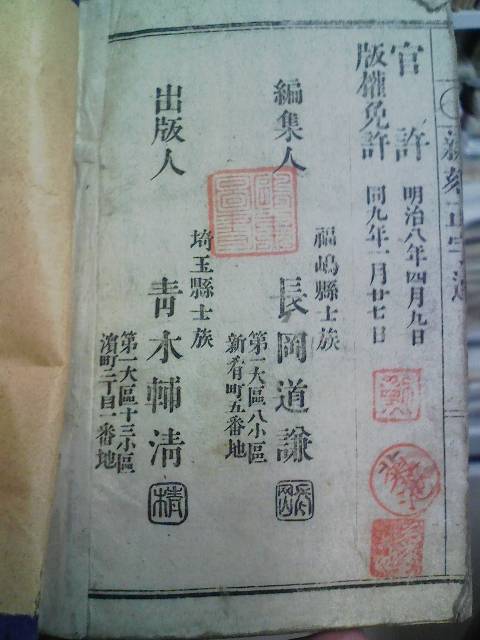 新刻正字通
官許 明治八年四月九日
版權免許 同九年一月廿七日
編集人
福嶋縣士族
長岡道謙
第一大區八小區
新肴町五番地
出版人
埼玉縣士族
青木輔清
第一大區十三小區
濱町二丁目一番地